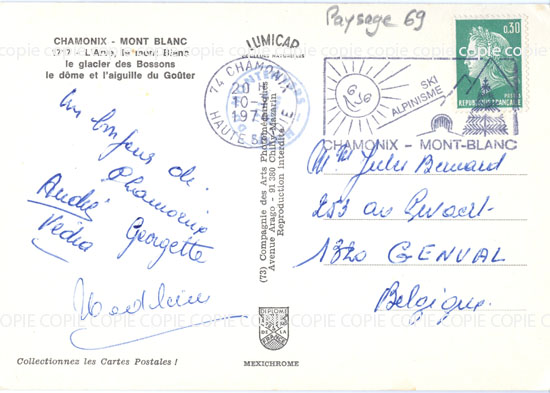 Paysage 69
CHAMONIX - MONT BLANC
1717 - L'Arve, le mont Blanc
le glacier des Bossons
le dôme et l'aiguille du Goûter
LUMICAP
0,30
POSTES
REPUBLIQUE FRANÇAISE
74 CHAMONIX
20
10-
197
HAUTE SAVOIE
SKI
ALPINISME
CHAMONIX - MONT-BLANC
Un bonjour de
Chamonix
André Georgette
Vedra
Madeleine
(73) Compagnie des Arts Photomécaniques
Avenue Arago - 91 380 Chilly-Mazarin
Reproduction interdite
Jules Bernard
253 av
1320 GENVAL
Belgique
DIPLOME
DE LA
FRANCE
Collectionnez les Cartes Postales !
MEXICHROME
COPIE COPIE COPIE COPIE COPIE COPIE COPIE